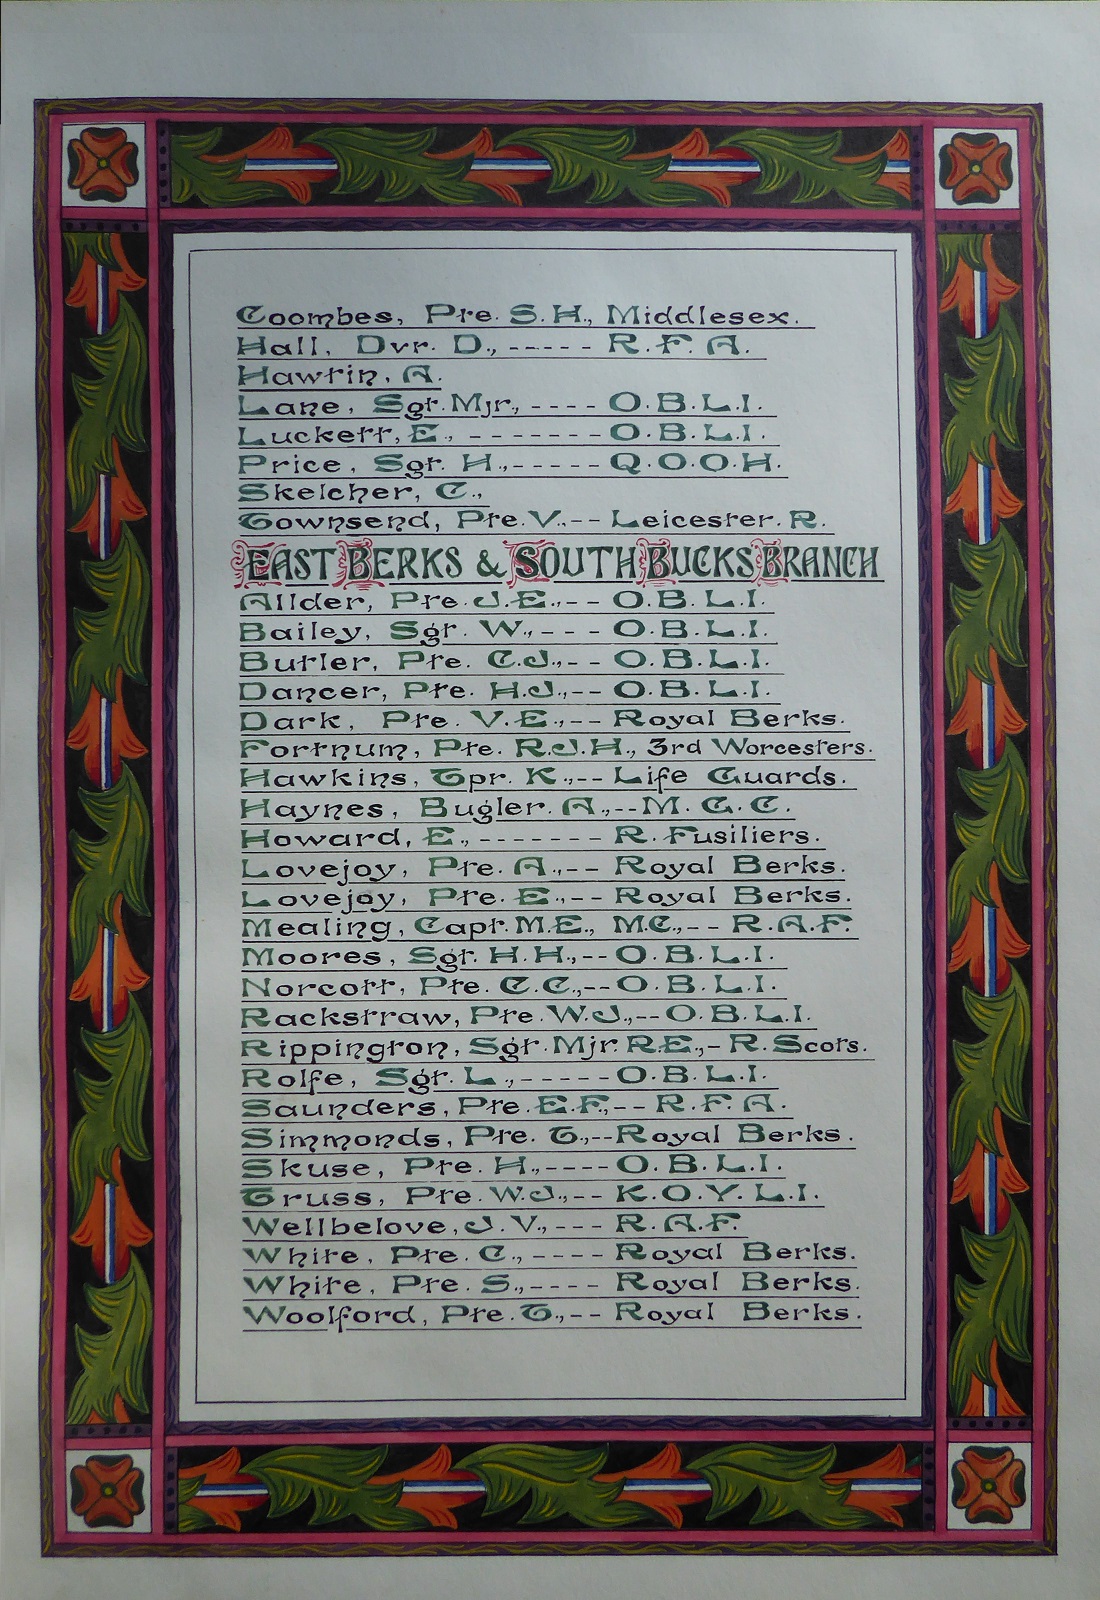 Coombes, Pte. S.H., Middlesex.
Hall, Dvr. D., ----- R.F.A.
Hawtin, A.
Lane, Sgt. Mjr., ---- O.B.L.I.
Luckett, E., ------- O.B.L.I.
Price, Sgt. H., ----- Q.O.O.H.
Skelcher, C.,
Townsend, Pte. V., -- Leicester. R.
EAST BERKS & SOUTH BUCKS BRANCH
Allder, Pte. J.E., -- O.B.L.I.
Bailey, Sgt. W., --- O.B.L.I.
Butler, Pte. C.J., -- O.B.L.I.
Dancer, Pte. H.J., -- O.B.L.I.
Dark, Pte. V.E., -- Royal Berks.
Fortnum, Pte. R.J.H., 3rd Worcesters.
Hawkins, Tpr. K., -- Life Guards.
Haynes, Bugler. A., -- M.G.C.
Howard, E., ------- R. Fusiliers.
Lovejoy, Pte. A., -- Royal Berks.
Lovejoy, Pte. E., -- Royal Berks.
Mealing, Capt. M.E., M.C., -- R.A.F.
Moores, Sgt. H.H., -- O.B.L.I.
Norcott, Pte. C.C., -- O.B.L.I.
Rackstraw, Pte. W.J., -- O.B.L.I.
Rippington, Sgt. Mjr. R.E., - R. Scots.
Rolfe, Sgt. L., ----- O.B.L.I.
Saunders, Pte. E.F., -- R.F.A.
Simmonds, Pte. T., -- Royal Berks.
Skuse, Pte. H., ---- O.B.L.I.
Truss, Pte. W.J., -- K.O.Y.L.I.
Wellbelove, J.V., --- R.A.F.
White, Pte. C., ---- Royal Berks.
White, Pte. S., ---- Royal Berks.
Woolford, Pte. T., -- Royal Berks.